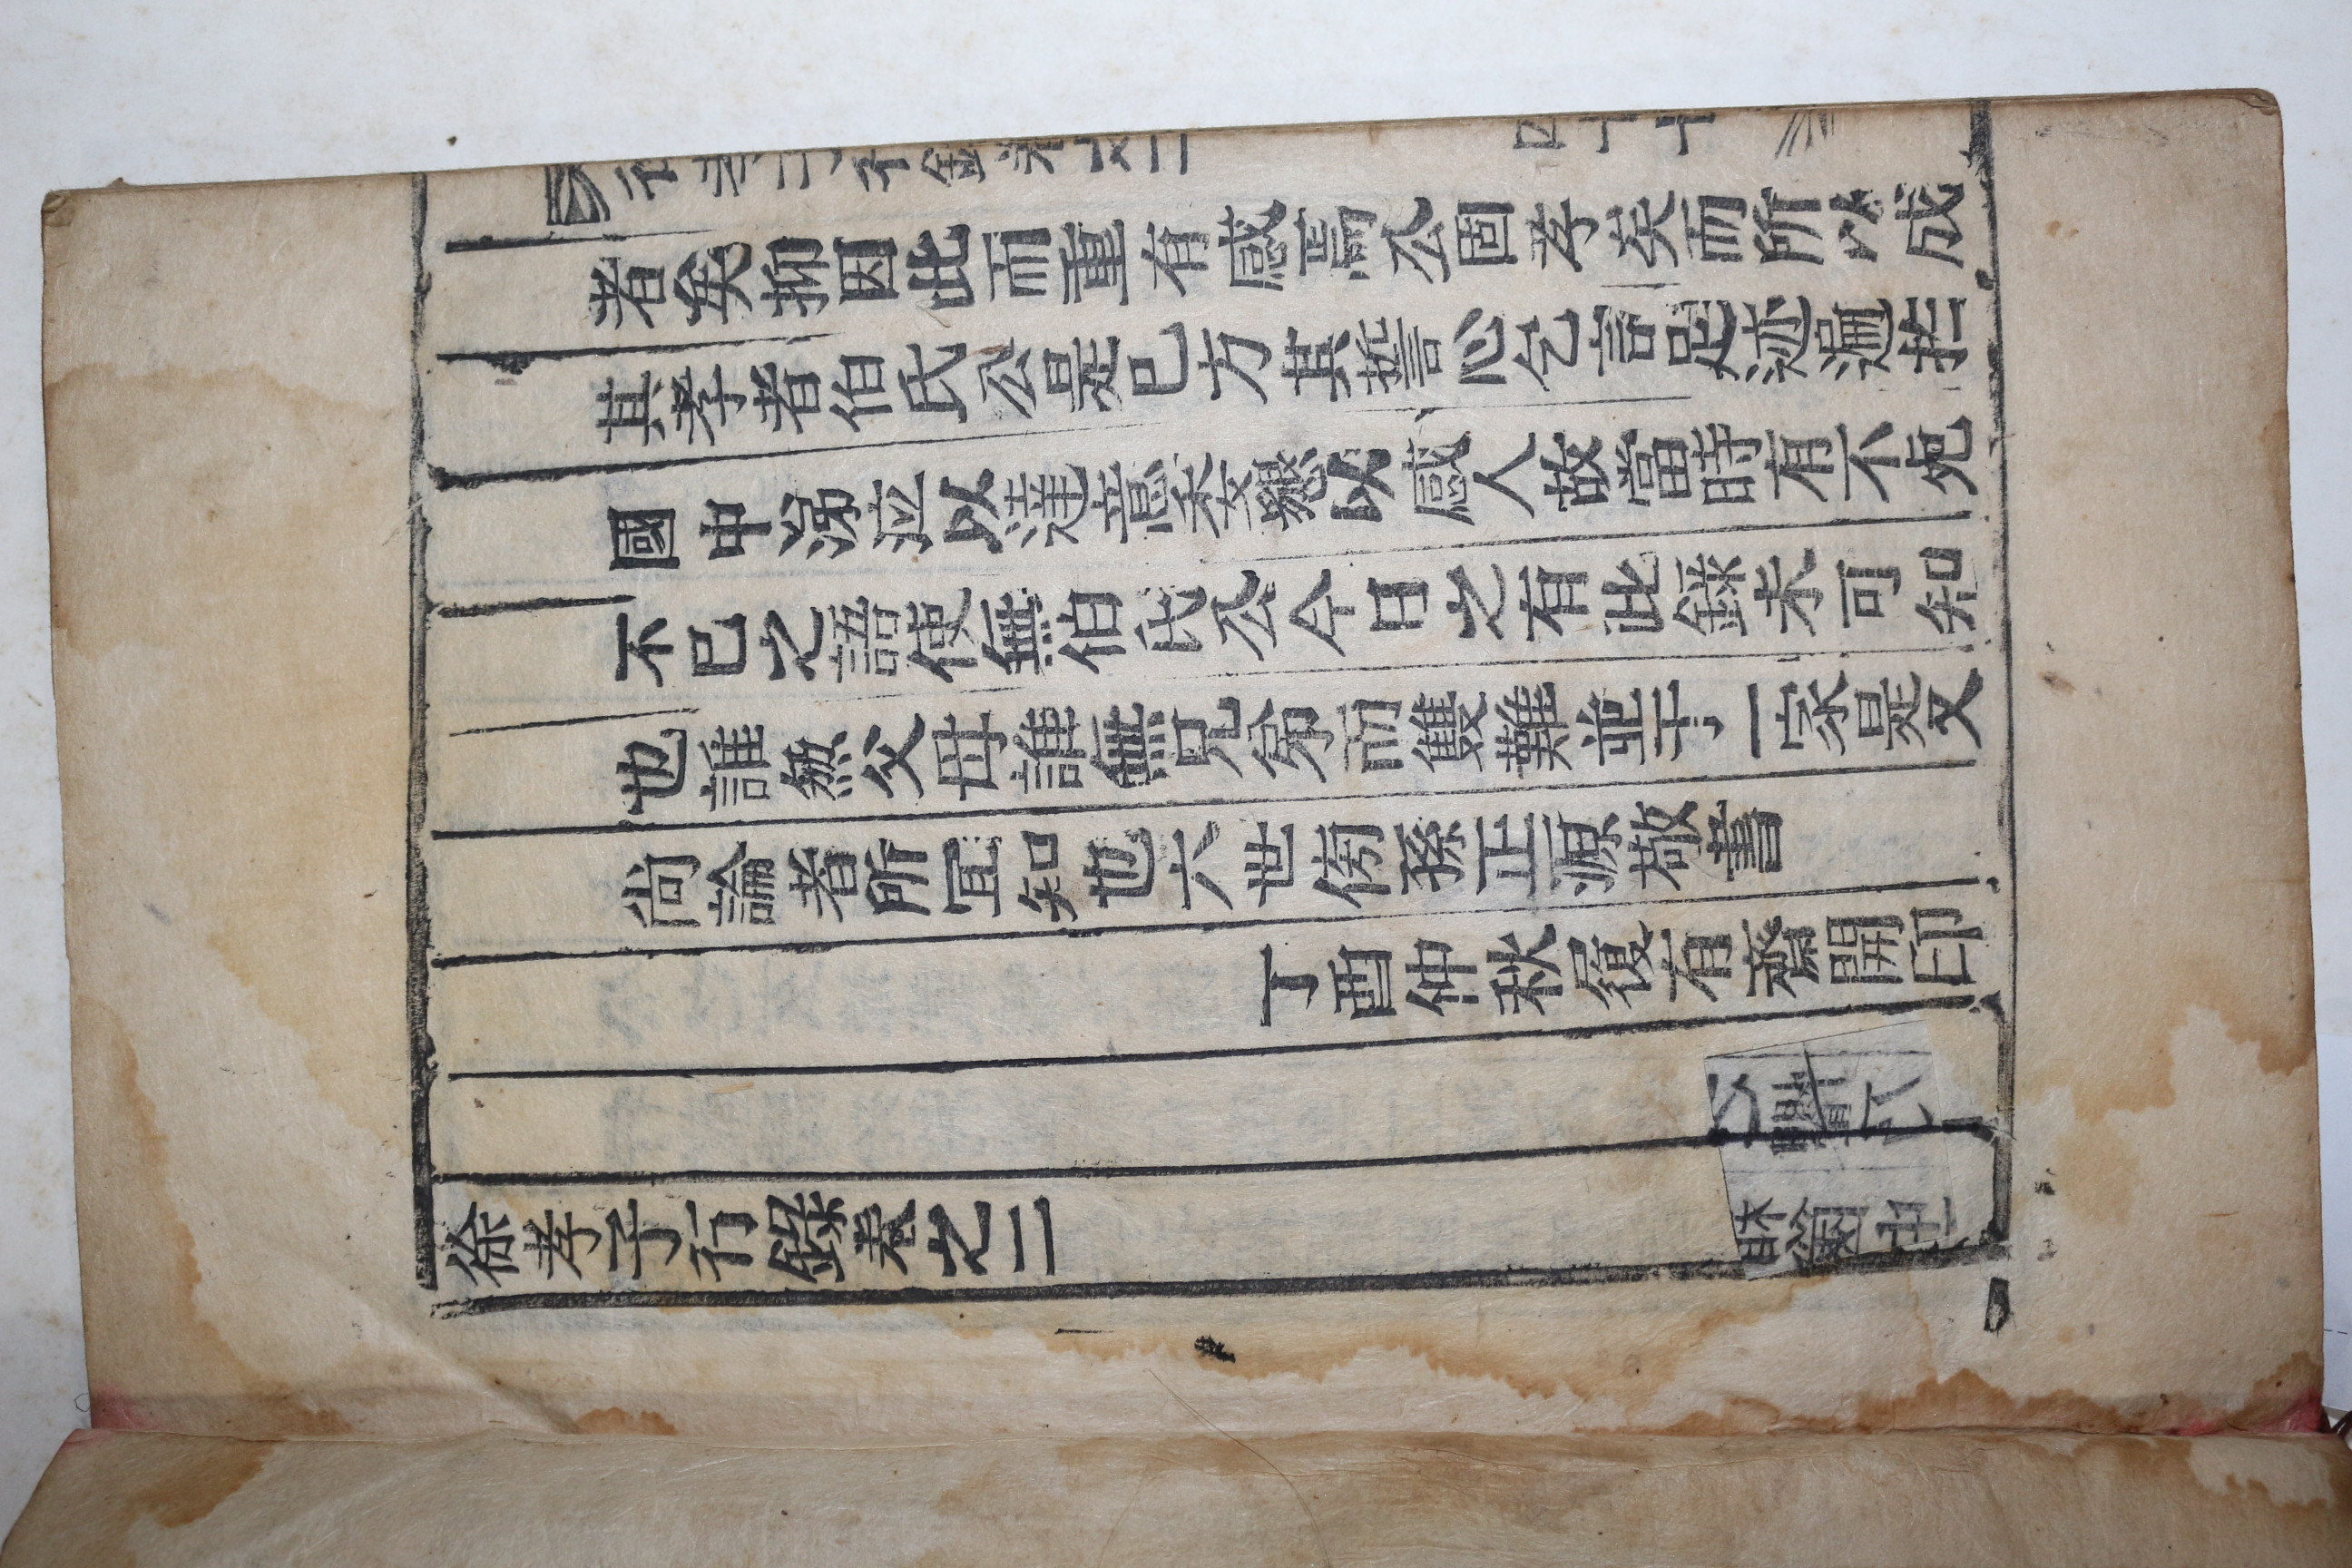 徐孝子行錄卷之二
四十七
者矣抑因此而重有感焉公固孝矣而所以成
其孝者伯氏公是已方其誓心乞言足迹遍扵
國中涕泣以達意委懇以感人故當時有不庛
不已之語使無伯氏公今日之有此錄未可知
也誰無父母誰無兄弟而雙難並于一家是又
尚論者所冝知也六世傍孫正源敬書
丁酉仲秋履有齋開印
徐孝子行錄卷之二